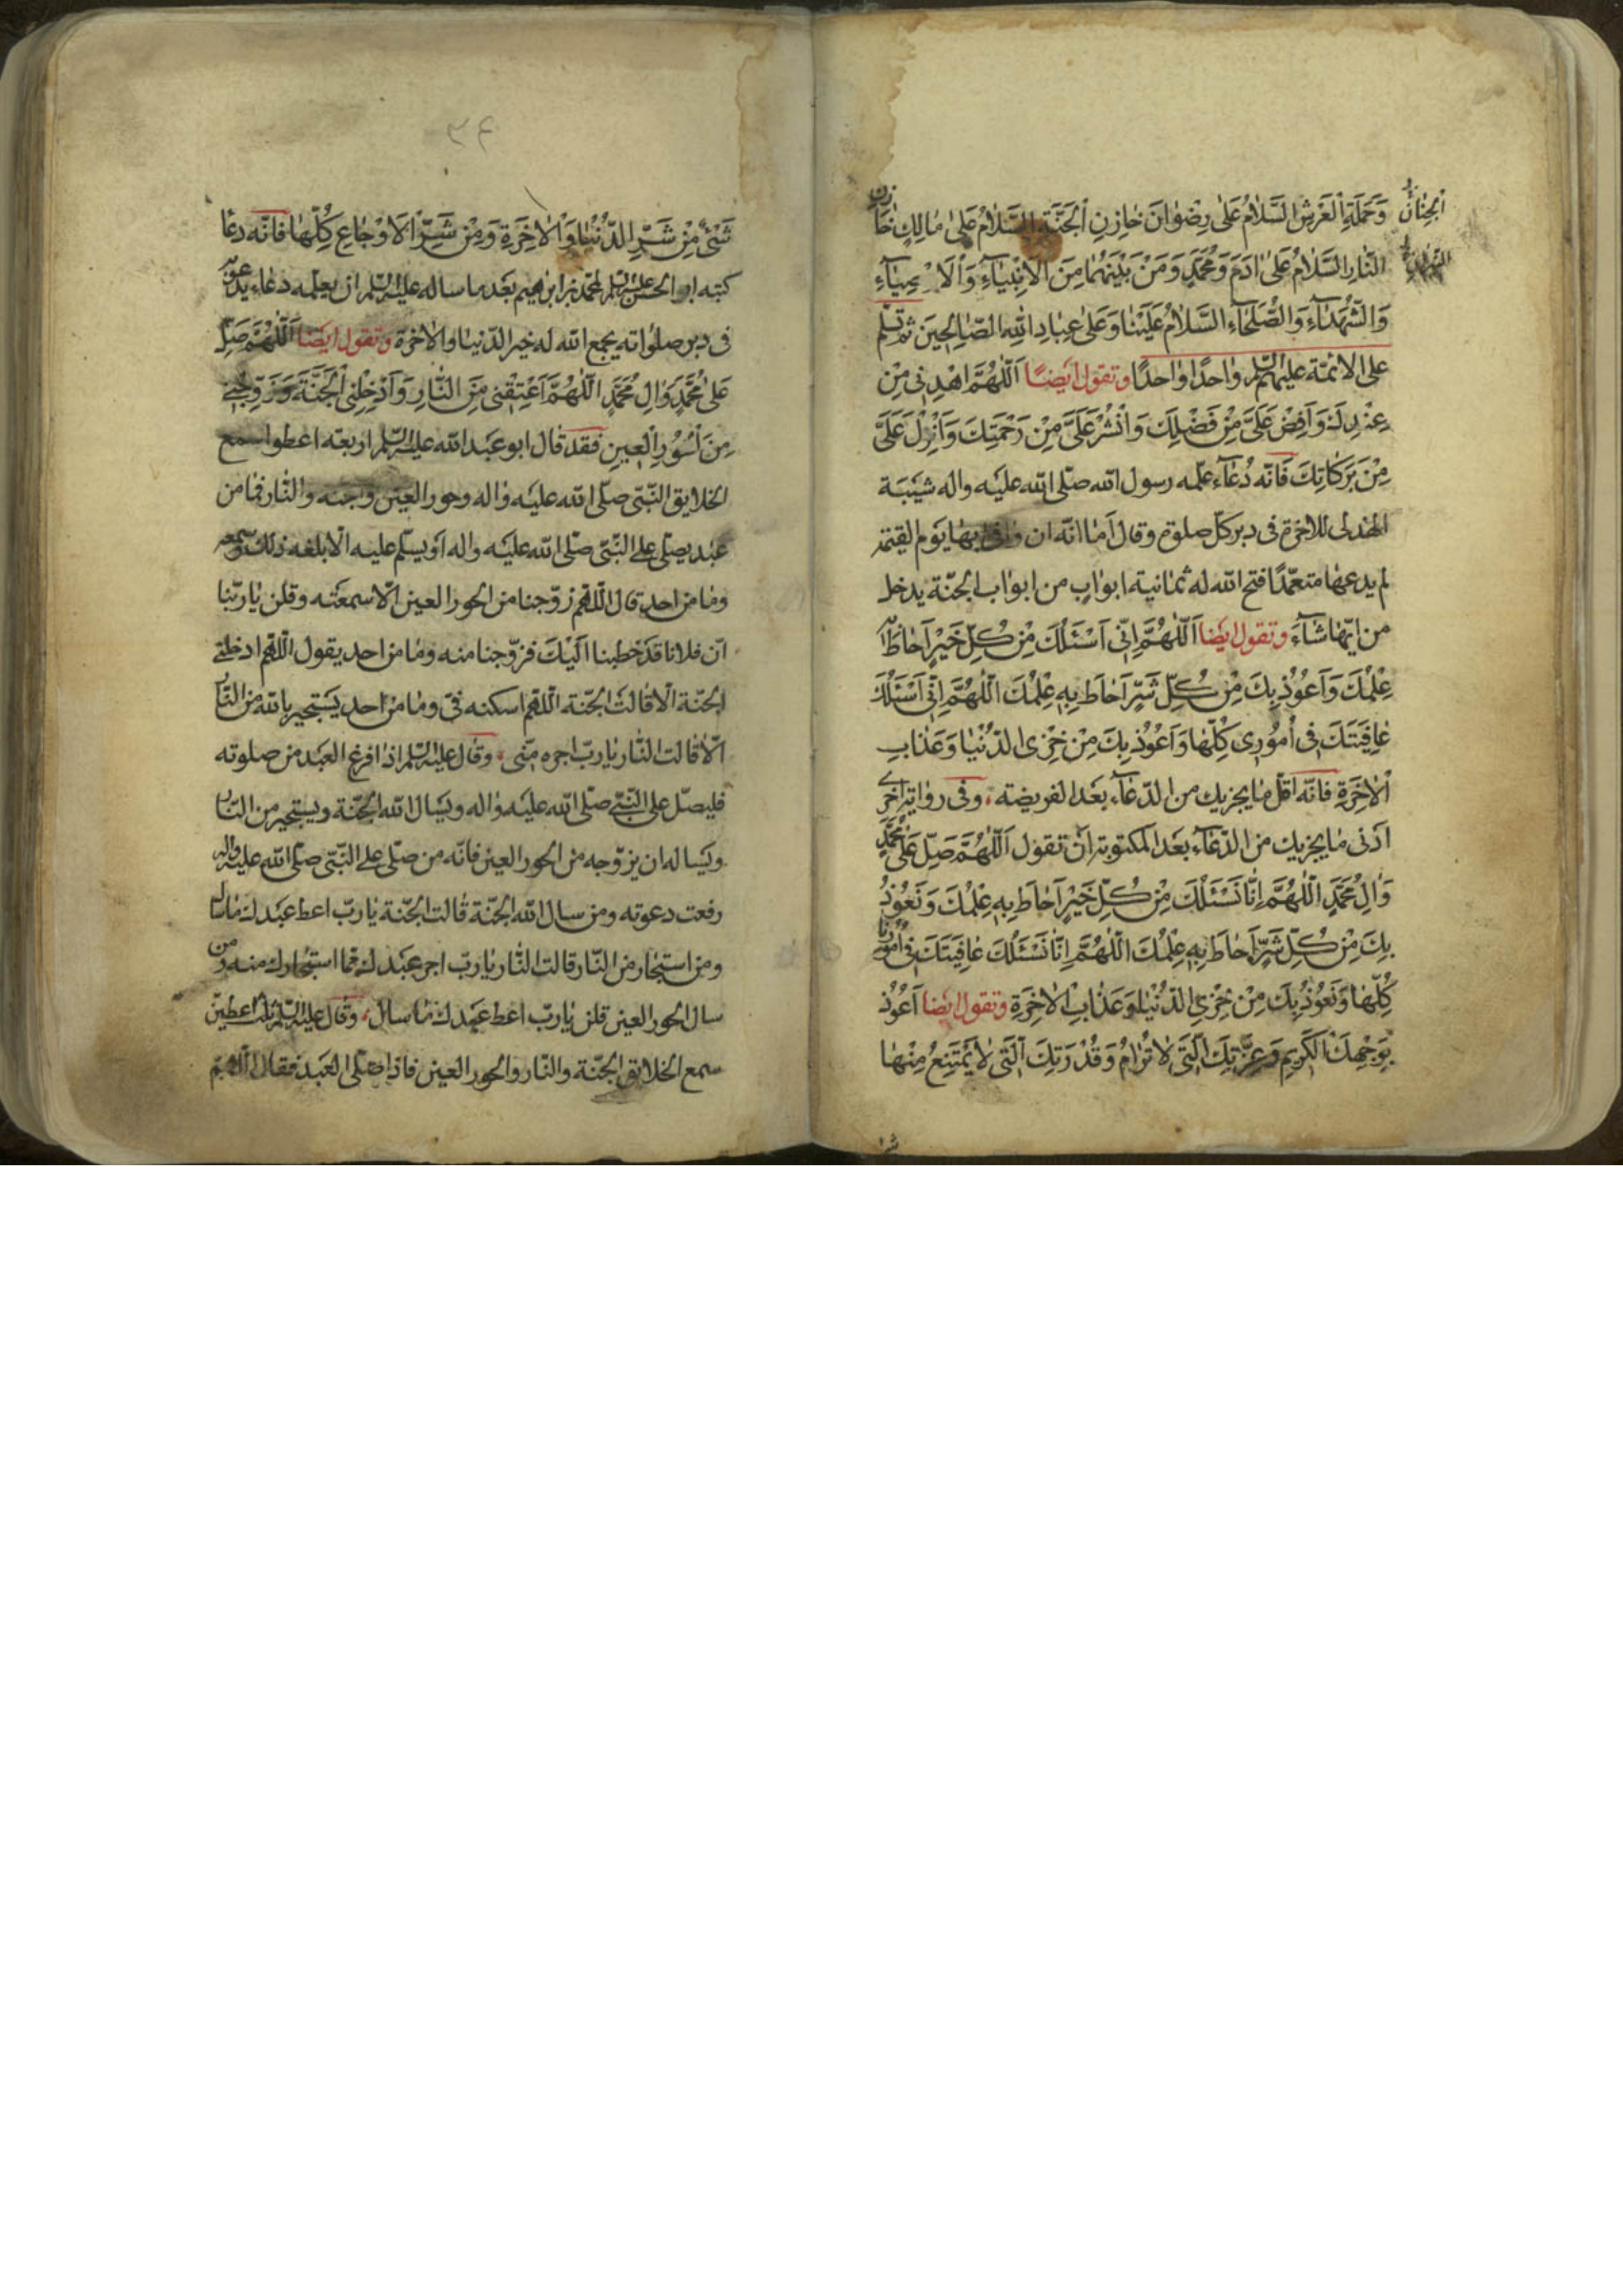 وَحَمَلَةِ الْعَرْشِ السَّلَامُ عَلَىٰ رِضْوَانَ خَازِنِ الْجَنَّةِ السَّلَامُ عَلَىٰ مَالِكٍ خَازِنِ
النَّارِ السَّلَامُ عَلَىٰ اٰدَمَ وَمُحَمَّدٍ وَمَنْ بَيْنَهُمَا مِنَ الْاَنْبِيَاءِ وَالْاَوْصِيَاءِ
وَالشُّهَدَاءِ وَالصُّلَحَاءِ السَّلَامُ عَلَيْنَا وَعَلَىٰ عِبَادِ اللهِ الصَّالِحِينَ ثم تسلّم
على الائمّة عليهم السّلم واحدًا واحدًا وتقول ايضًا اَللّٰهُمَّ اهْدِنِي مِنْ
عِنْدِكَ وَاَفِضْ عَلَيَّ مِنْ فَضْلِكَ وَانْشُرْ عَلَيَّ مِنْ رَحْمَتِكَ وَاَنْزِلْ عَلَيَّ
مِنْ بَرَكَاتِكَ فانّه دُعاء علّمه رسول الله صلّى الله عليه واله شيبة
الهذلى للاخرة فى دبر كلّ صلوة وقال اما انّه ان وافى بها يوم القيمة
لم يدعها متعمّدًا فتح الله له ثمانية ابواب من ابواب الجنّة يدخل
من ايّها شاء وتقول ايضا اَللّٰهُمَّ اِنِّي اَسْئَلُكَ مِنْ كُلِّ خَيْرٍ اَحَاطَ بِهِ
عِلْمُكَ وَاَعُوذُ بِكَ مِنْ كُلِّ شَرٍّ اَحَاطَ بِهِ عِلْمُكَ اَللّٰهُمَّ اِنِّي اَسْئَلُكَ
عَافِيَتَكَ فِي اُمُورِي كُلِّهَا وَاَعُوذُ بِكَ مِنْ خِزْيِ الدُّنْيَا وَعَذَابِ
الْاٰخِرَةِ فانّه اقلّ ما يجزيك من الدّعاء بعد الفريضه وفى رواية اخرى
ادنى ما يجزيك من الدّعاء بعد المكتوبة ان تقول اَللّٰهُمَّ صَلِّ عَلَىٰ مُحَمَّدٍ
وَاٰلِ مُحَمَّدٍ اَللّٰهُمَّ اِنَّا نَسْئَلُكَ مِنْ كُلِّ خَيْرٍ اَحَاطَ بِهِ عِلْمُكَ وَنَعُوذُ
بِكَ مِنْ كُلِّ شَرٍّ اَحَاطَ بِهِ عِلْمُكَ اَللّٰهُمَّ اِنَّا نَسْئَلُكَ عَافِيَتَكَ فِي اُمُورِنَا
كُلِّهَا وَنَعُوذُ بِكَ مِنْ خِزْيِ الدُّنْيَا وَعَذَابِ الْاٰخِرَةِ وتقول ايضا اَعُوذُ
بِوَجْهِكَ الْكَرِيمِ وَعِزَّتِكَ الَّتِي لَا تُرَامُ وَقُدْرَتِكَ الَّتِي لَا يَمْتَنِعُ مِنْهَا
الْجِنَانِ
٣٤
شَيْءٌ مِنْ شَرِّ الدُّنْيَا وَالْاٰخِرَةِ وَمِنْ شَرِّ الْاَوْجَاعِ كُلِّهَا فانّه دعا
كتبه ابو الحسن عليه السلم لمحمّد بن ابرهيم بعد ما ساله عليه السّلم ان يعلّمه دعاء يدعو به
فى دبر صلواته يجمع الله له خير الدّنيا والاخرة وتقول ايضا اَللّٰهُمَّ صَلِّ
عَلَىٰ مُحَمَّدٍ وَاٰلِ مُحَمَّدٍ اَللّٰهُمَّ اَعْتِقْنِي مِنَ النَّارِ وَاَدْخِلْنِي الْجَنَّةَ وَزَوِّجْنِي
مِنَ الْحُورِ الْعِينِ فقد قال ابو عبد الله عليه السّلم اربعة اعطوا سمع
الخلايق النّبىّ صلّى الله عليه واله وحور العين والجنه والنّار فما من
عبد يصلّى على النّبىّ صلّى الله عليه واله او يسلّم عليه الّا بلغه ذلك وسمعه
وما من احد قال اللّهمّ زوّجنا من الحور العين الّا سمعنه وقلن يا ربّنا
انّ فلانا قد خطبنا اليك فزوّجنا منه وما من احد يقول اللّهمّ ادخلنى
الجنّة الّا قالت الجنّة اللّهمّ اسكنه فىّ وما من احد يستجير بالله من النّار
الّا قالت النّار يا ربّ اجره منّى وقال عليه السّلم اذا فرغ العبد من صلوته
فليصلّ على النّبىّ صلّى الله عليه واله ويسال الله الجنّة ويستجير من النّار
ويساله ان يزوّجه من الحور العين فانّه من صلّى على النّبىّ صلّى الله عليه واله
رفعت دعوته ومن سال الله الجنّة قالت الجنّة يا ربّ اعط عبدك ما سال
ومن استجار من النّار قالت النّار يا ربّ اجر عبدك ممّا استجارك منه ومن
سال الحور العين قلن يا ربّ اعط عبدك ما سال وقال عليه السّلم ثلث اعطين
سمع الخلايق الجنّة والنّار والحور العين فاذا صلّى العبد فقال اللّهمّ